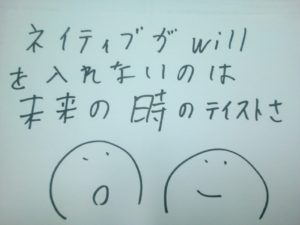 ネイティブが will
を入れないのは
未来の時のテイストさ